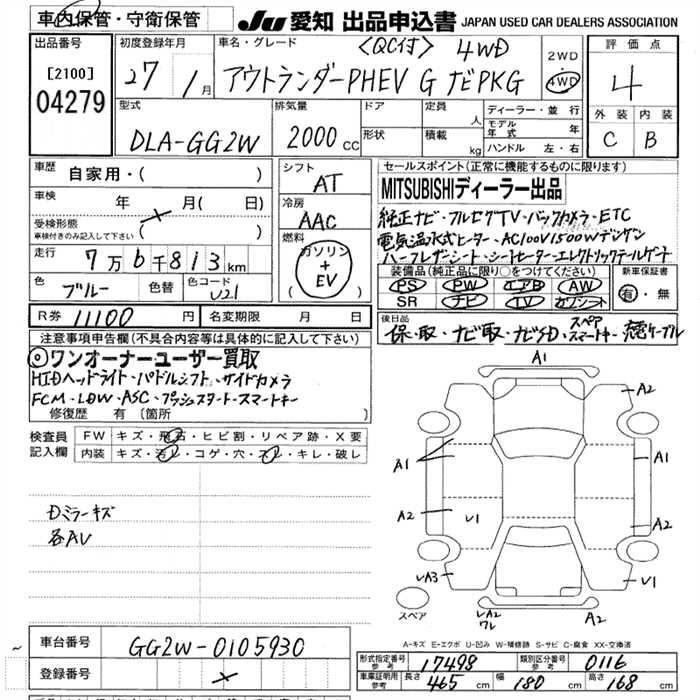 車内保管・守衛保管
JU 愛知 出品申込書 JAPAN USED CAR DEALERS ASSOCIATION
出品番号
[2100]
04279
初度登録年月
27 1月
車名・グレード
<QC付> 4WD
アウトランダーPHEV G ナビPKG
2WD
4WD
評価点
4
外装 内装
C B
型式
DLA-GG2W
排気量
2000cc
ドア
形状
定員 人
積載 kg
ディーラー・並行
モデル年式 年
ハンドル 左・右
車歴
自家用・( )
車検 年 月( 日)
受検形態
車検付きのみ記入して下さい ( )
走行 7万6千813km
色 ブルー 色替 色コード U21
シフト
AT
冷房
AAC
燃料
ガソリン
+
EV
( )
セールスポイント(正常に機能するものに限ります)
MITSUBISHIディーラー出品
純正ナビ・フルセグTV・バックカメラ・ETC
電気温水式ヒーター・AC100V1500Wデンゲン
ハーフレザーシート・シートヒーターエレクトリックテールゲート
装備品(純正品に限り○をつけて下さい)
PS PW エアB AW
SR ナビ TV カワシート
新車保証書
有・無
R券 11100円 名変期限 月 日
後日品
保・取・ナビ取・ナビSD・スペアスマートキー・充電ケーブル
注意事項申告欄(不具合内容等は具体的に記入して下さい)
◎ワンオーナーユーザー買取
HIDヘッドライト・パドルシフト・サイドカメラ
FCM・LDW・ASC・プッシュスタート・スマートキー
修復歴 有(箇所 )
検査員
記入欄
FW キズ・飛石・ヒビ割・リペア跡・X要
内装 キズ・汚レ・コゲ・穴・スレ・キレ・破レ
Dミラーキズ
各AU
A1
A2
A1
A1
A2
U1
A2
UA3
U1
UA2
ワレ
A2
スペア
A-キズ E-エクボ U-凹み W-補修跡 S-サビ C-腐食 XX-交換済
車台番号 GG2W-0105930
登録番号
形式指定番号 参考 17498 類別区分番号 参考 0116
車庫証明用 参考 長さ 465cm 幅 180cm 高さ 168cm